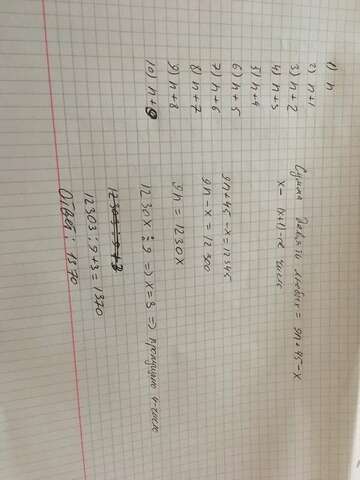 1) n
2) n+1
3) n+2
4) n+3
5) n+4
6) n+5
7) n+6
8) n+7
9) n+8
10) n+9
Сумма Девяти чисел = 9n+45-x
x- (x+1)-ое число
9n+45-x=12345
9n-x=12300
9n=1230x
1230x⋮9 => x=3 => пропущено 4-число
12303:9+3=1370
Ответ: 1370